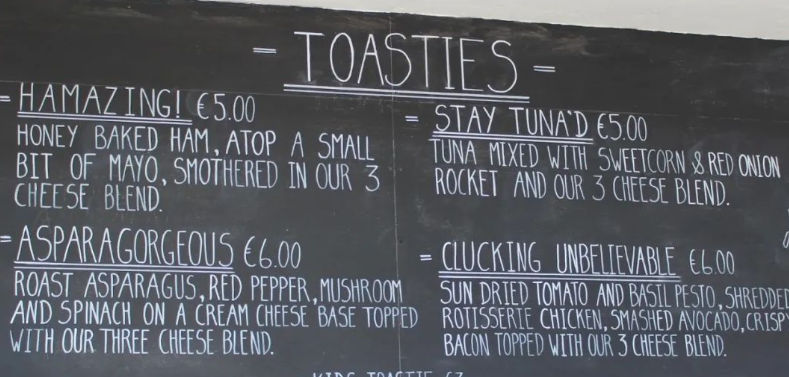 = TOASTIES =
= HAMAZING! €5.00
HONEY BAKED HAM, ATOP A SMALL
BIT OF MAYO, SMOTHERED IN OUR 3
CHEESE BLEND.
= STAY TUNA'D €5.00
TUNA MIXED WITH SWEETCORN & RED ONION
ROCKET AND OUR 3 CHEESE BLEND.
= ASPARAGORGEOUS €6.00
ROAST ASPARAGUS, RED PEPPER, MUSHROOM
AND SPINACH ON A CREAM CHEESE BASE TOPPED
WITH OUR THREE CHEESE BLEND.
= CLUCKING UNBELIEVABLE €6.00
SUN DRIED TOMATO AND BASIL PESTO, SHREDDED
ROTISSERIE CHICKEN, SMASHED AVOCADO, CRISPY
BACON TOPPED WITH OUR 3 CHEESE BLEND.
KIDS TOASTIE